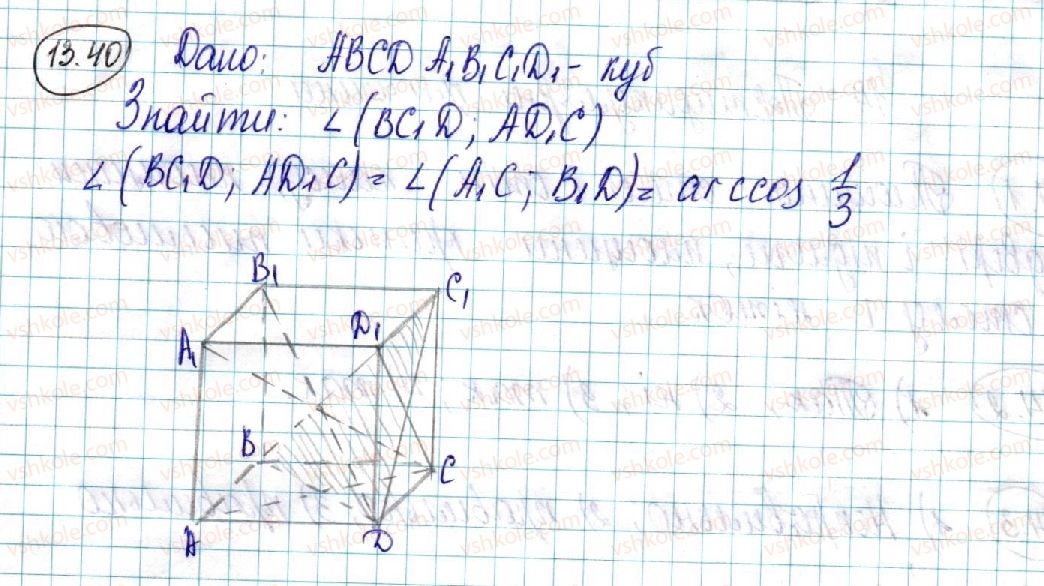 13.40 Дано: ABCDA₁B₁C₁D₁ - куб
Знайти: ∠(BC₁D; AD₁C)
∠(BC₁D; AD₁C) = ∠(A₁C; B₁D) = arccos 1/3
B₁
C₁
A₁
D₁
B
C
A
D
vshkole.com